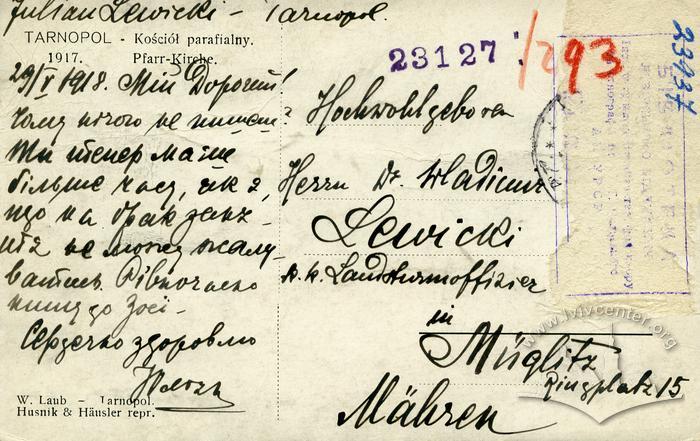 Julian Lewicki – Tarnopol.
TARNOPOL - Kościół parafialny.
1917. Pfarr-Kirche.
29/V 1918. Мій Дорогий!
Чому нічого не пишеш?
Ти тепер маєш
більше часу, як я,
що на брак занять
не можу жалу-
ватись. Рівночасно
пишу до Зосі.
Сердечно здоровлю
W. Laub – Tarnopol.
Husnik & Häusler repr.
23127
293
23437
Hochwohlgeboren
Herrn Dr. Wladimir
Lewicki
k. k. Landsturmoffizier
in
Müglitz
Ringplatz 15
Mähren
www.lvivcenter.org